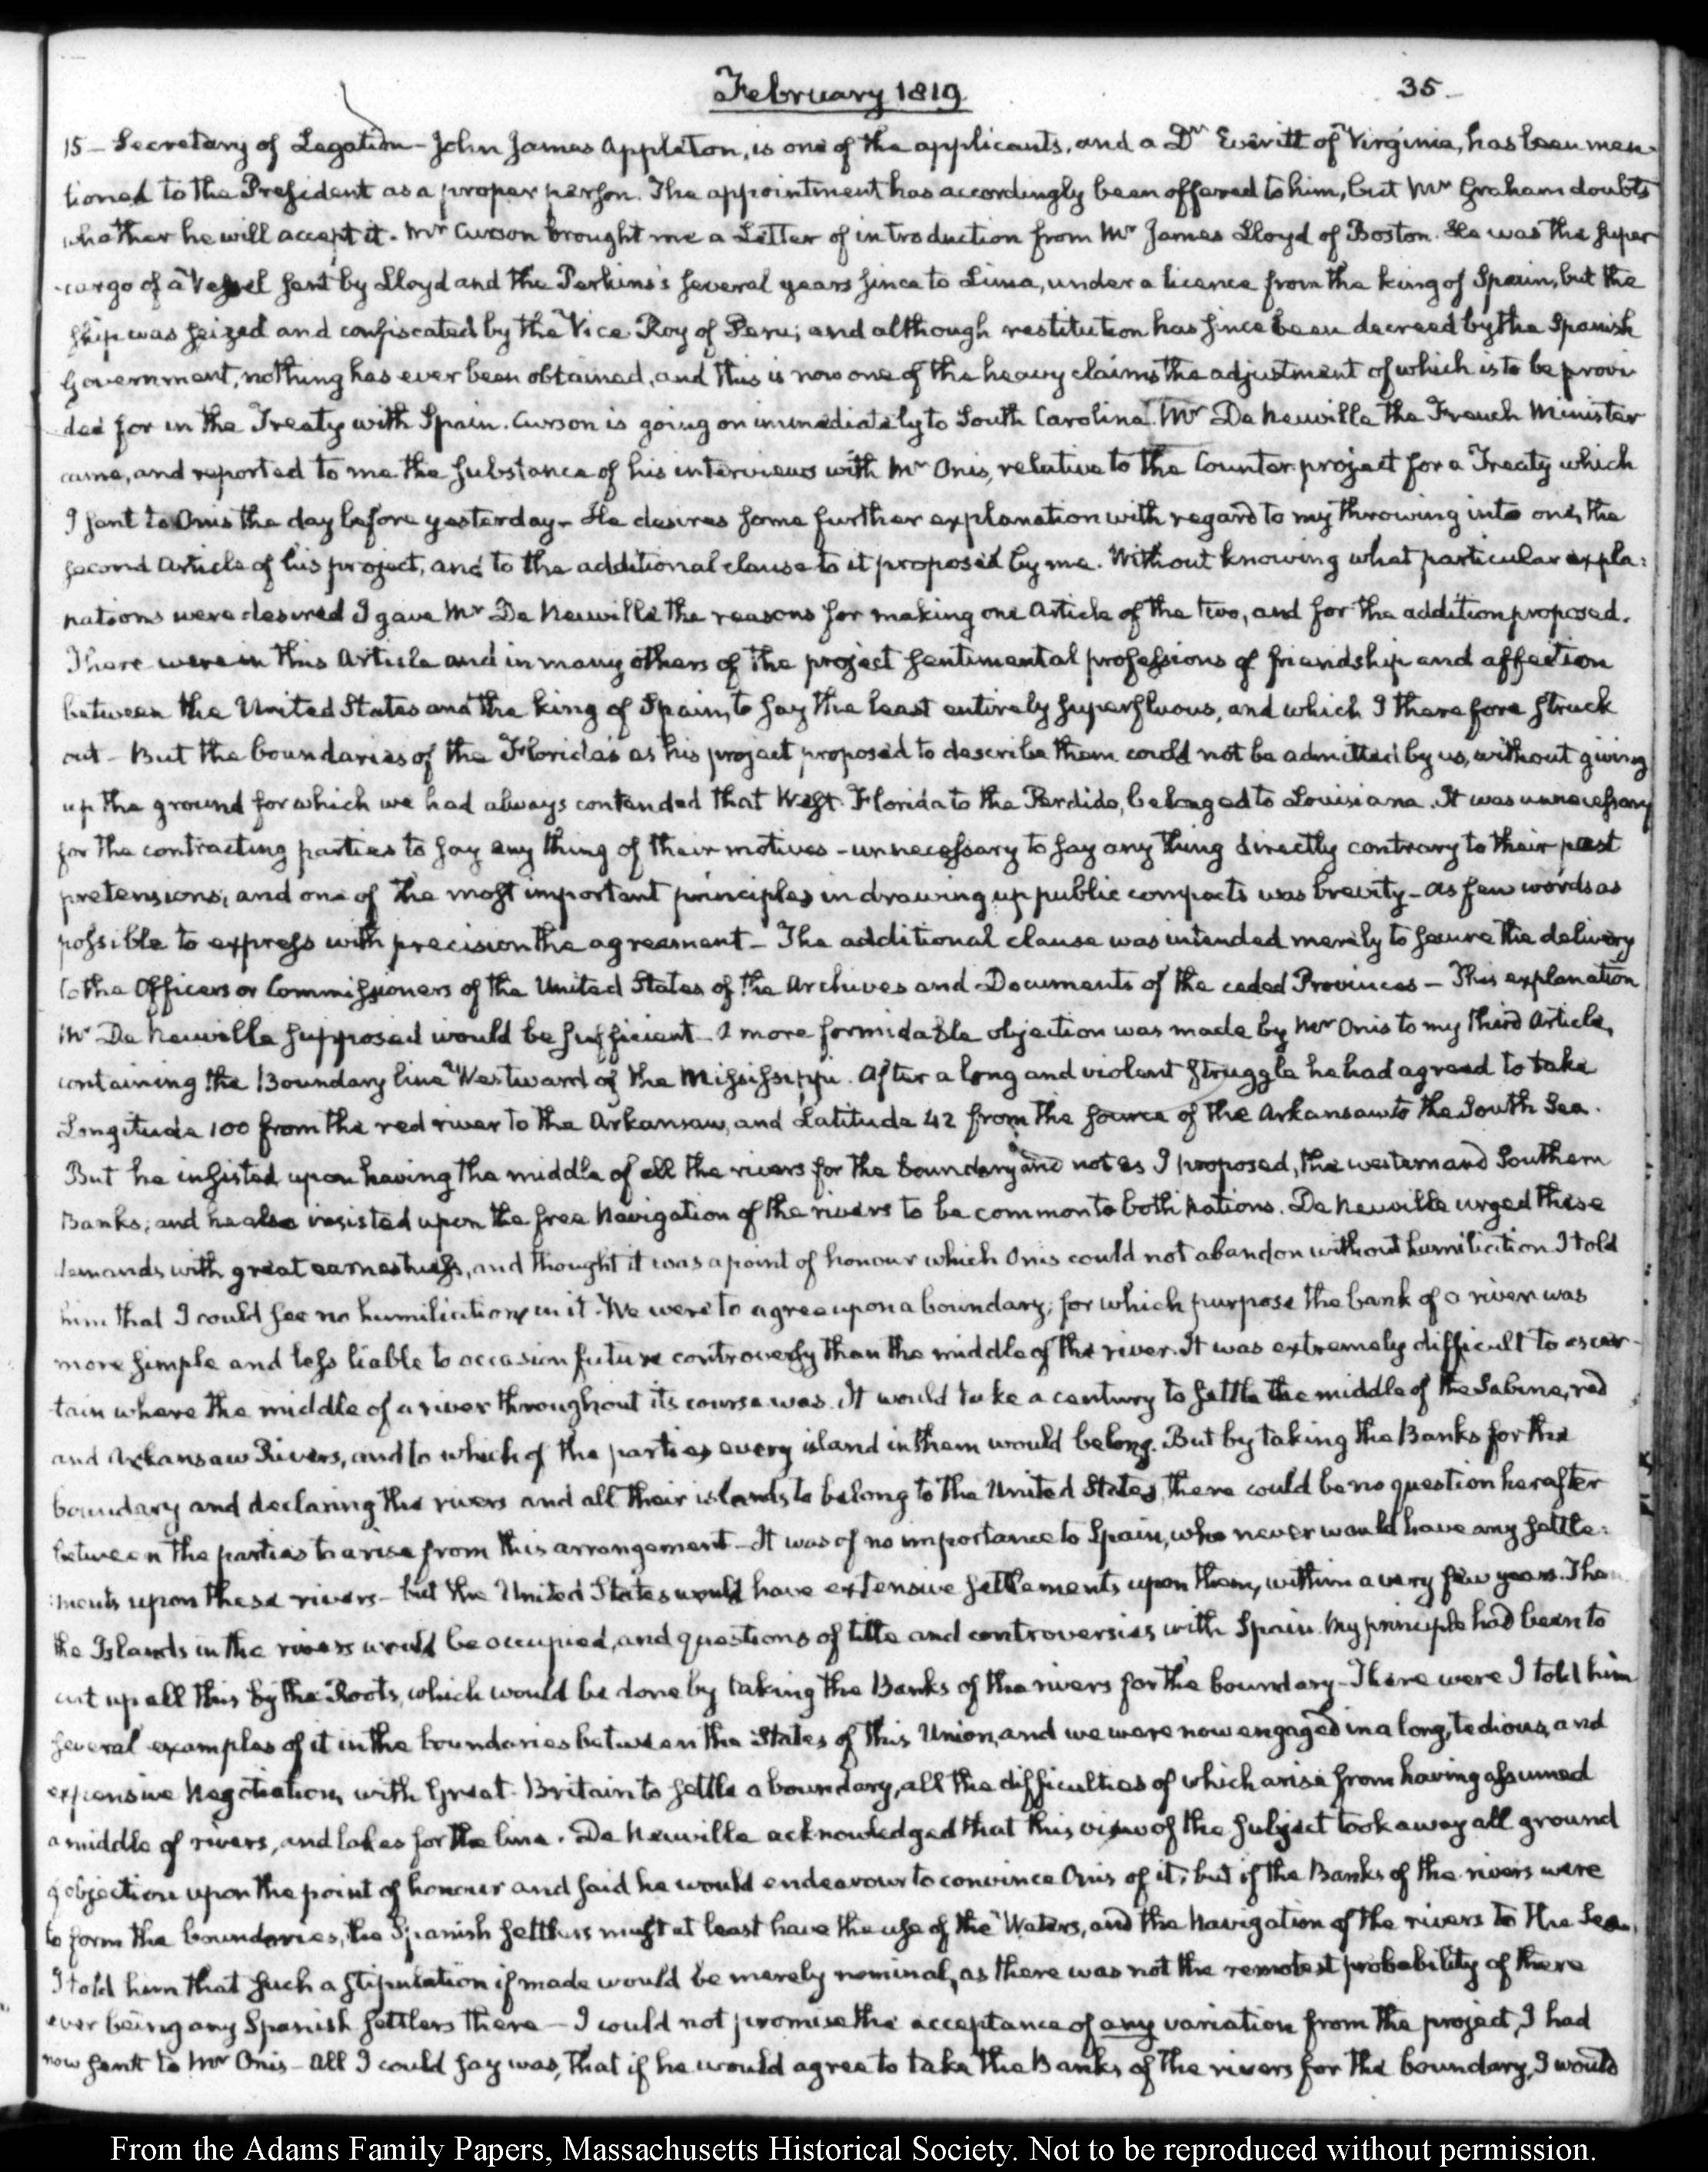 February 1819
35-
15 - Secretary of Legation - John James Appleton, is one of the applicants, and a Dr Everitt of Virginia, has been men-
tioned to the President as a proper person. The appointment has accordingly been offered to him, but Mr Graham doubts
whether he will accept it. Mr Curson brought me a Letter of introduction from Mr James Lloyd of Boston. He was the super
-cargo of a Vessel sent by Lloyd and the Perkins's several years since to Lima, under a licence from the king of Spain, but the
ship was seized and confiscated by the Vice-Roy of Peru; and although restitution has since been decreed by the Spanish
Government, nothing has ever been obtained, and this is now one of the heavy claims the adjustment of which is to be provi-
ded for in the Treaty with Spain. Curson is going on immediately to South Carolina. Mr De Neuville the French Minister
came, and reported to me the substance of his interviews with Mr Onis, relative to the Counter-project for a Treaty which
I sent to Onis the day before yesterday - He desires some further explanation with regard to my throwing into one, the
second Article of his project, and to the additional clause to it proposed by me. Without knowing what particular expla:
nations were desired I gave Mr De Neuville the reasons for making one Article of the two, and for the addition proposed.
There were in this Article and in many others of the project sentimental professions of friendship and affection
between the United States and the king of Spain, to say the least entirely superfluous, and which I therefore struck
out - But the boundaries of the Florida's as his project proposed to describe them could not be admitted by us, without giving
up the ground for which we had always contended that West-Florida to the Perdido, belonged to Louisiana. It was unnecessary
for the contracting parties to say any thing of their motives - unnecessary to say any thing directly contrary to their past
pretensions, and one of the most important principles in drawing up public compacts was brevity - as few words as
possible to express with precision the agreement - The additional clause was intended merely to secure the delivery
to the Officers or Commissioners of the United States of the Archives and Documents of the ceded Provinces - This explanation
Mr De Neuville supposed would be sufficient - A more formidable objection was made by Mr Onis to my third Article,
containing the Boundary line Westward of the Missisippi. After a long and violent struggle he had agreed to take
Longitude 100 from the red river to the Arkansaw, and Latitude 42 from the source of the Arkansaw to the South Sea.
But he insisted upon having the middle of all the rivers for the boundary, and not as I proposed, the western and Southern
Banks; and he also insisted upon the free Navigation of the rivers to be common to both Nations. De Neuville urged these
demands with great earnestness, and thought it was a point of honour which Onis could not abandon without humiliation. I told
him that I could see no humiliation in it. We were to agree upon a boundary, for which purpose the bank of a river was
more simple and less liable to occasion future controversy than the middle of the river. It was extremely difficult to ascer-
tain where the middle of a river throughout its course was. It would take a century to settle the middle of the Sabine, red
and Arkansaw Rivers, and to which of the parties every island in them would belong. But by taking the Banks for the
boundary and declaring the rivers and all their islands, to belong to the United States, there could be no question hereafter
between the parties to arise from this arrangement - It was of no importance to Spain, who never would have any settle:
:ments upon these rivers - but the United States would have extensive settlements upon them, within a very few years. Then
the Islands in the rivers would be occupied, and questions of title and controversies with Spain. My principle had been to
cut up all this by the Roots, which would be done by taking the Banks of the rivers for the boundary - There were I told him
several examples of it in the boundaries between the States of this Union, and we were now engaged in a long, tedious, and
expensive Negotiation, with Great-Britain to settle a boundary, all the difficulties of which arise from having assumed
a middle of rivers, and lakes for the line. De Neuville acknowledged that this view of the subject took away all ground
of objection upon the point of honour and said he would endeavour to convince Onis of it; but if the Banks of the rivers were
to form the boundaries, the Spanish settlers must at least have the use of the Waters, and the Navigation of the rivers to the Sea.
I told him that such a stipulation if made would be merely nominal, as there was not the remotest probability of there
ever being any Spanish settlers there - I could not promise the acceptance of any variation from the project, I had
now sent to Mr Onis - All I could say was, that if he would agree to take the Banks of the rivers for the boundary, I would
From the Adams Family Papers, Massachusetts Historical Society. Not to be reproduced without permission.